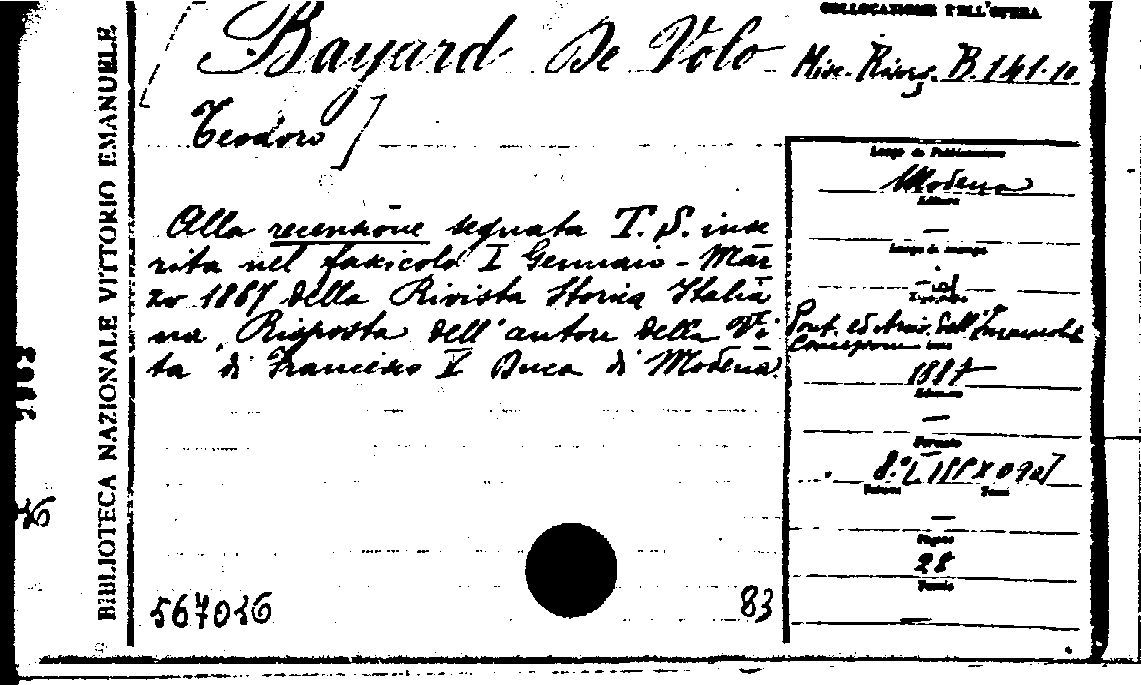 COLLOCAZIONE DELL'OPERA
[Bayard De Volo
Misc. Risorg. B.141.10
Teodoro]
Luogo di Pubblicazione
Modena
Editore
—
Luogo di stampa
id
Tipografia
Pont. ed Arciv. dell'Immacolata
Concezione
Anno
1887
Edizione
—
Formato
8.°
Volumi Tomi
—
Pagine
28
Tavole
—
Alla recensione segnata T. S. inse
rita nel fascicolo I Gennaio - Mar
zo 1887 della Rivista Storica Italia
na, Risposta dell'autore della Vi
ta di Francesco V Duca di Modena.
567016
83
BIBLIOTECA NAZIONALE VITTORIO EMANUELE